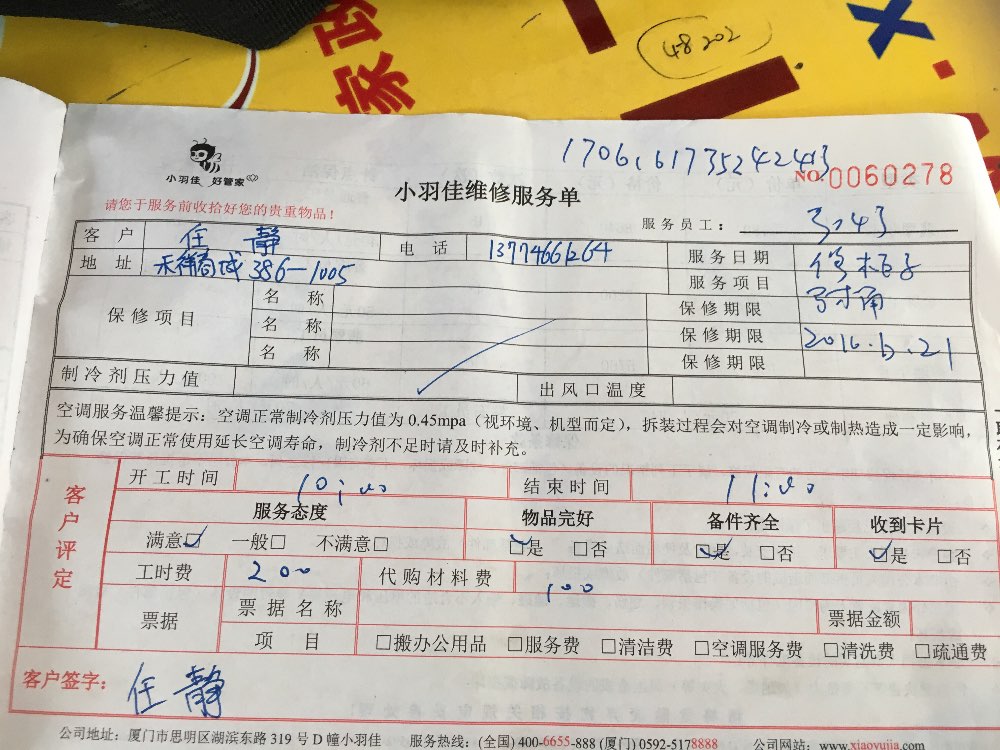 家政
48202
17061617352424
小羽佳 好管家
NO.0060278
小羽佳维修服务单
请您于服务前收拾好您的贵重物品！
服务员工：
客户 任静 电话 服务日期
地址 禾祥商城386-1005 服务项目
保修项目 名称 保修期限
名称 保修期限 2016.6.21
名称 保修期限
制冷剂压力值 出风口温度
空调服务温馨提示：空调正常制冷剂压力值为0.45mpa（视环境、机型而定），拆装过程会对空调制冷或制热造成一定影响，
为确保空调正常使用延长空调寿命，制冷剂不足时请及时补充。
客户评定
开工时间 10:00 结束时间 11:00
服务态度 物品完好 备件齐全 收到卡片
满意☑ 一般□ 不满意□ ☑是 □否 ☑是 □否 ☑是 □否
工时费 200 代购材料费 100
票据 票据名称 票据金额
项目 □搬办公用品 □服务费 □清洁费 □空调服务费 □清洗费 □疏通费
客户签字：任静
公司地址：厦门市思明区湖滨东路319号D幢小羽佳 服务热线：(全国) 400-6655-888 (厦门) 0592-5178888 公司网站：www.xiaoyujia.com